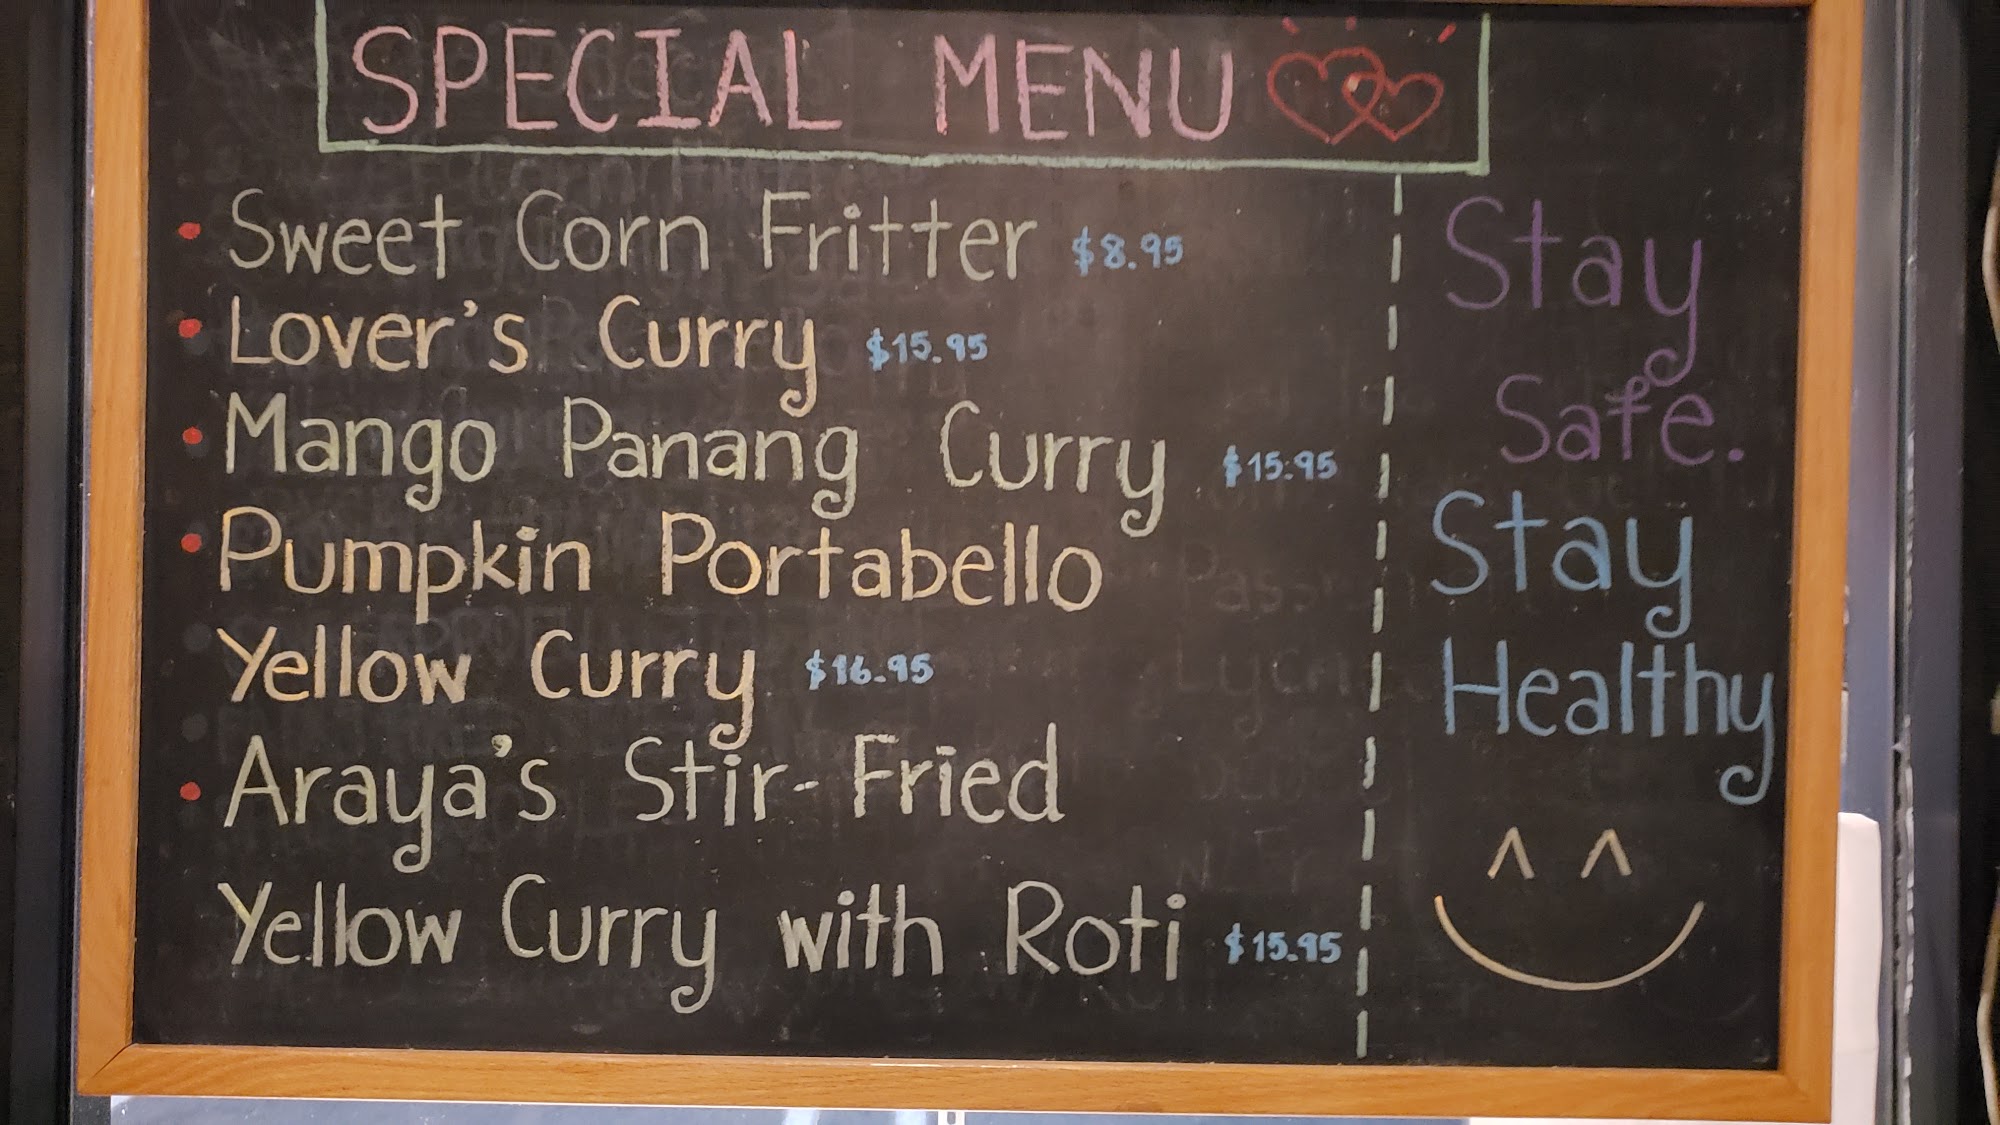 SPECIAL MENU
Sweet Corn Fritter $8.95
Lover's Curry $15.95
Mango Panang Curry $15.95
Pumpkin Portabello
Yellow Curry $16.95
Araya's Stir-Fried
Yellow Curry with Roti $15.95
Stay
Safe.
Stay
Healthy